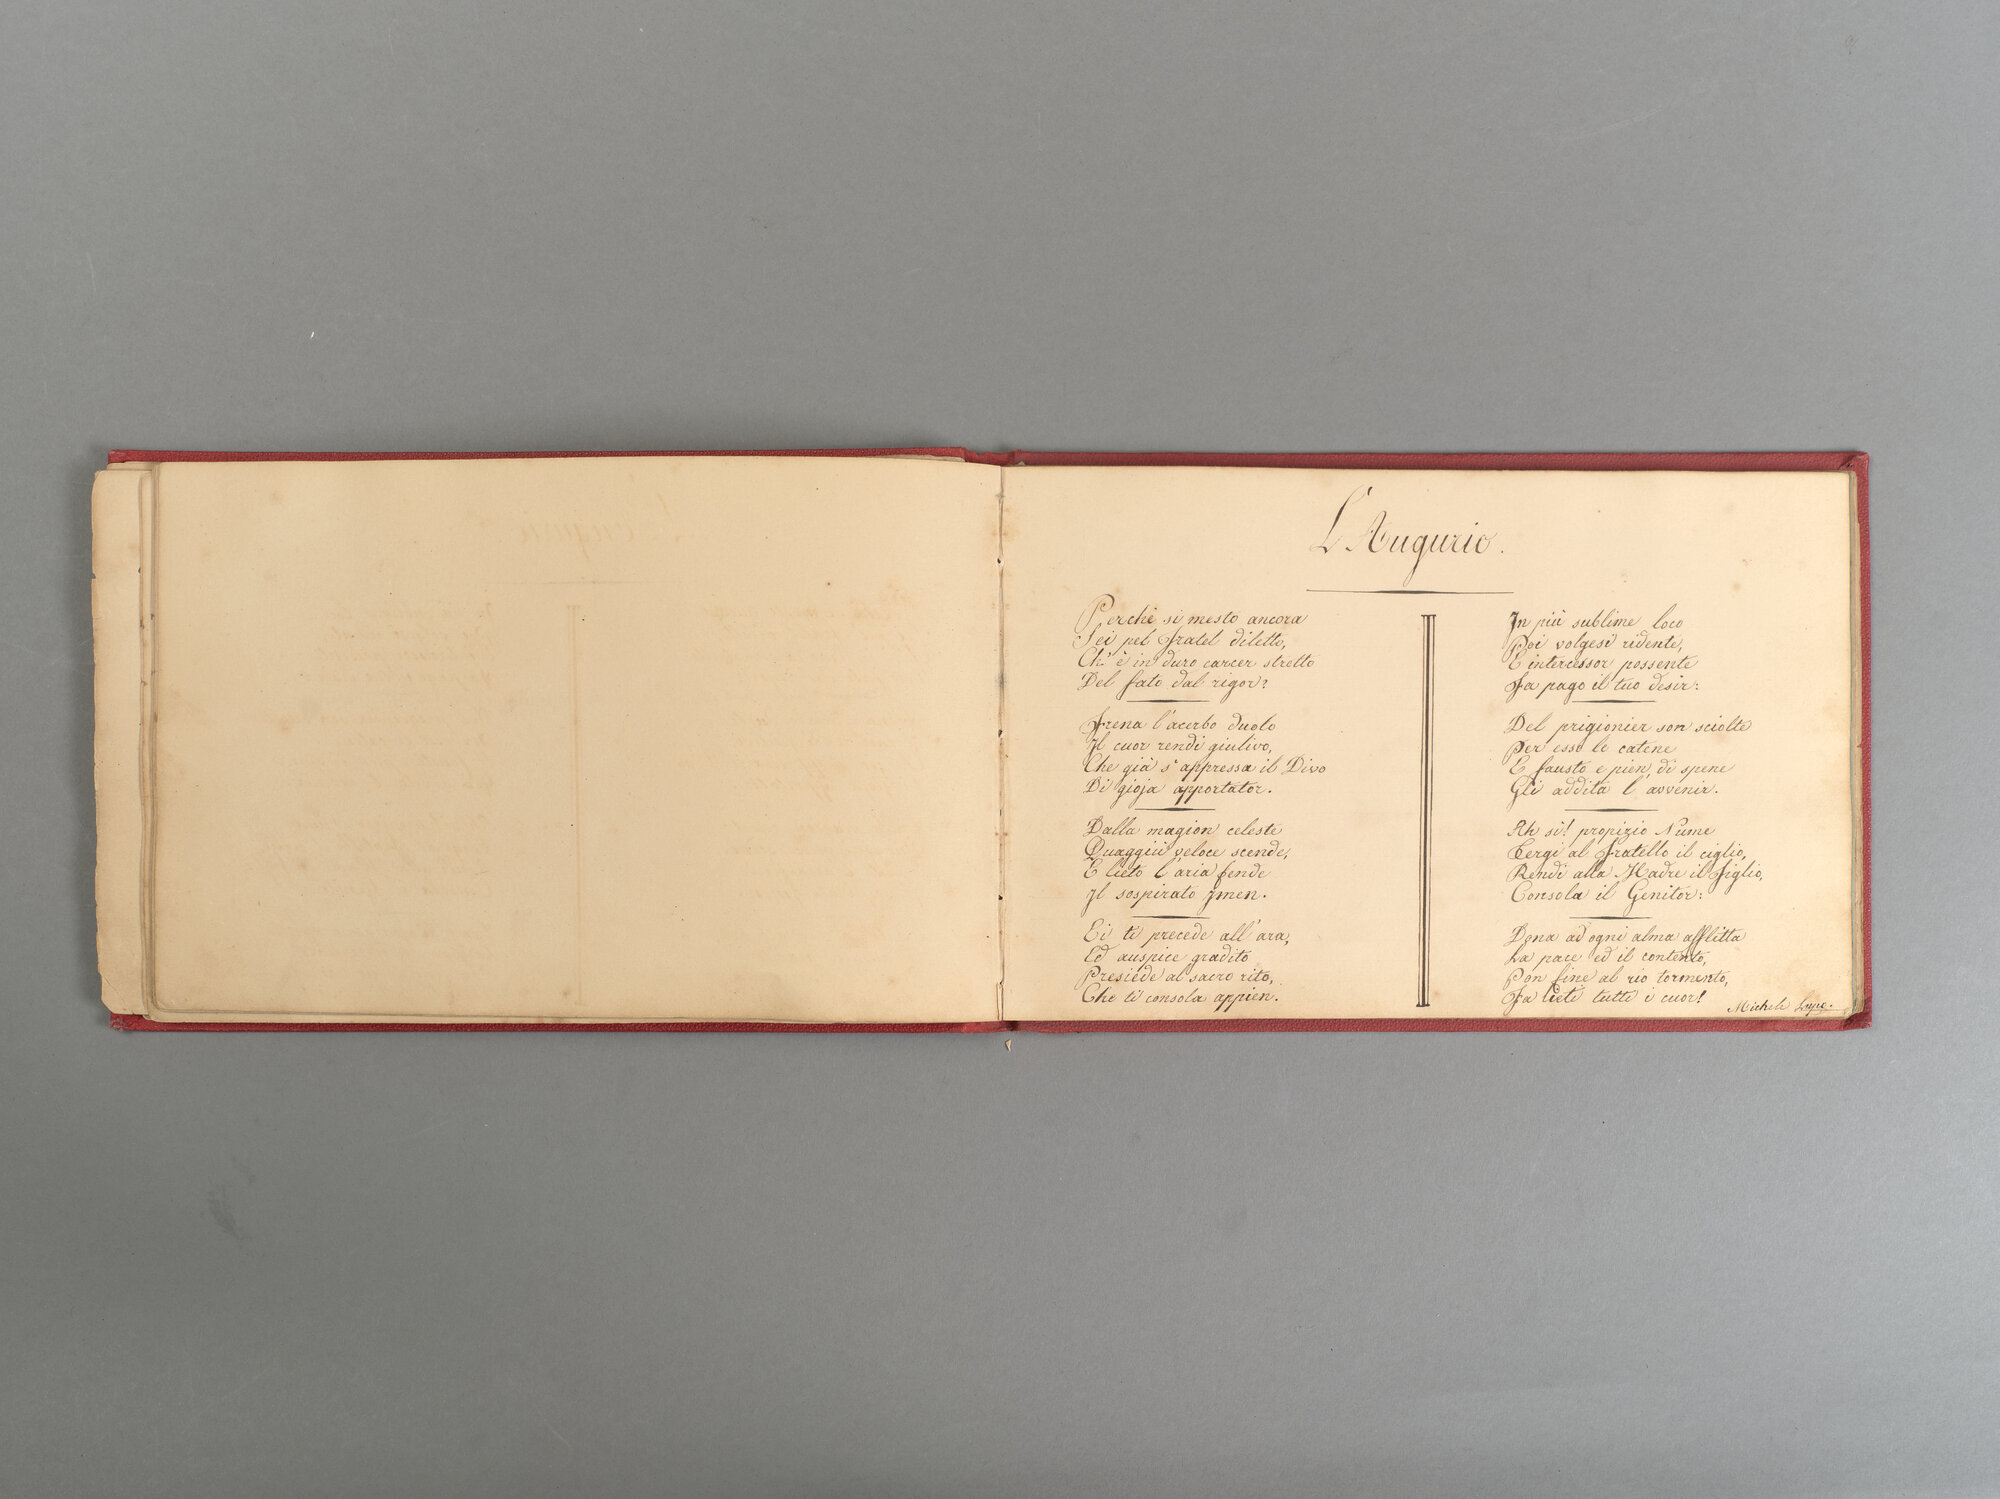 L'Augurio.
Perchè si mesto ancora
Sei pel fratel diletto,
Ch' è in duro carcer stretto
Del fato dal rigor?
Frena l'acerbo duolo
Il cuor rendi giulivo,
Che già s'appressa il Divo
Di gioja apportator.
Dalla magion celeste
Quaggiù veloce scende,
E lieto l'aria fende
Il sospirato Imen.
Ei ti precede all'ara,
Ed auspice gradito
Presiede al sacro rito,
Che ti consola appien.
In più sublime loco
Poi volgesi ridente,
E intercessor possente
Fa pago il tuo desir:
Del prigionier son sciolte
Per esso le catene
E fausto e pien di spene
Gli addita l'avvenir.
Ah si! propizio Nume
Tergi al fratello il ciglio,
Rendi alla Madre il figlio,
Consola il Genitor:
Dona ad ogni alma afflitta
La pace ed il contento,
Pon fine al rio tormento,
Fa lieti tutti i cuor!
Michele